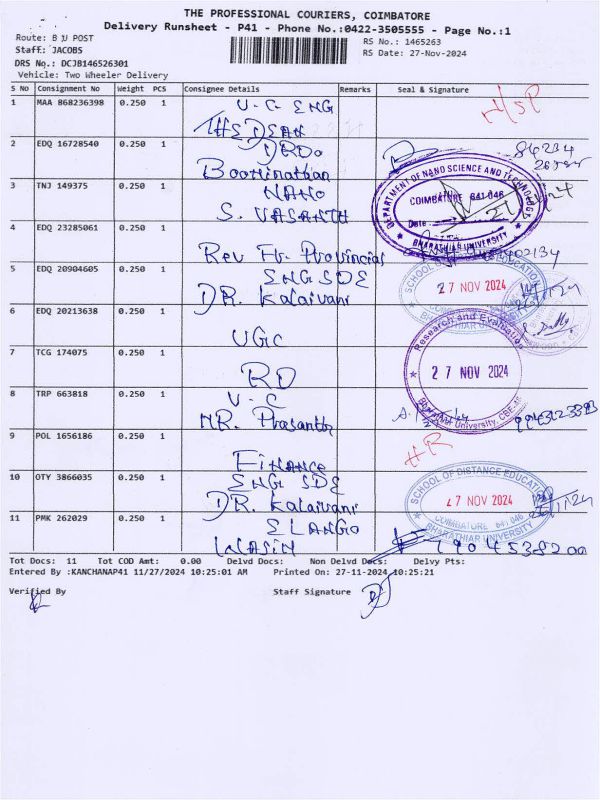 THE PROFESSIONAL COURIERS, COIMBATORE
Delivery Runsheet - P41 - Phone No.:0422-3505555 - Page No.:1
Route: B U POST
RS No.: 1465263
Staff: JACOBS
RS Date: 27-Nov-2024
DRS No.: DCJB146526301
Vehicle: Two Wheeler Delivery
S No Consignment No Weight PCS Consignee Details Remarks Seal & Signature
1 MAA 868236398 0.250 1 V-C ENG
2 EDQ 16728540 0.250 1 DRDO
Boominathan
3 TNJ 149375 0.250 1 NANO
S. VASANTH
DEPARTMENT OF NANO SCIENCE AND TECHNOLOGY
COIMBATORE 641 046
Date
BHARATHIAR UNIVERSITY
4 EDQ 23285061 0.250 1
Rev Fr. Provincial
5 EDQ 20904605 0.250 1 ENG SDE
DR. Kalaivani
SCHOOL OF DISTANCE EDUCATION
27 NOV 2024
BHARATHIAR UNIVERSITY
6 EDQ 20213638 0.250 1
UGC
Research and Evaluation
27 NOV 2024
7 TCG 174075 0.250 1
RD
8 TRP 663818 0.250 1 V-C
MR. Prasanth
9 POL 1656186 0.250 1
FINANCE
HR
10 OTY 3866035 0.250 1 ENG SDE
DR. Kalaivani
SCHOOL OF DISTANCE EDUCATION
27 NOV 2024
COIMBATORE 641 046
BHARATHIAR UNIVERSITY
11 PMK 262029 0.250 1 ELANGO
Tot Docs: 11 Tot COD Amt: 0.00 Delvd Docs: Non Delvd Docs: Delvy Pts:
Entered By :KANCHANAP41 11/27/2024 10:25:01 AM Printed On: 27-11-2024 10:25:21
Verified By Staff Signature